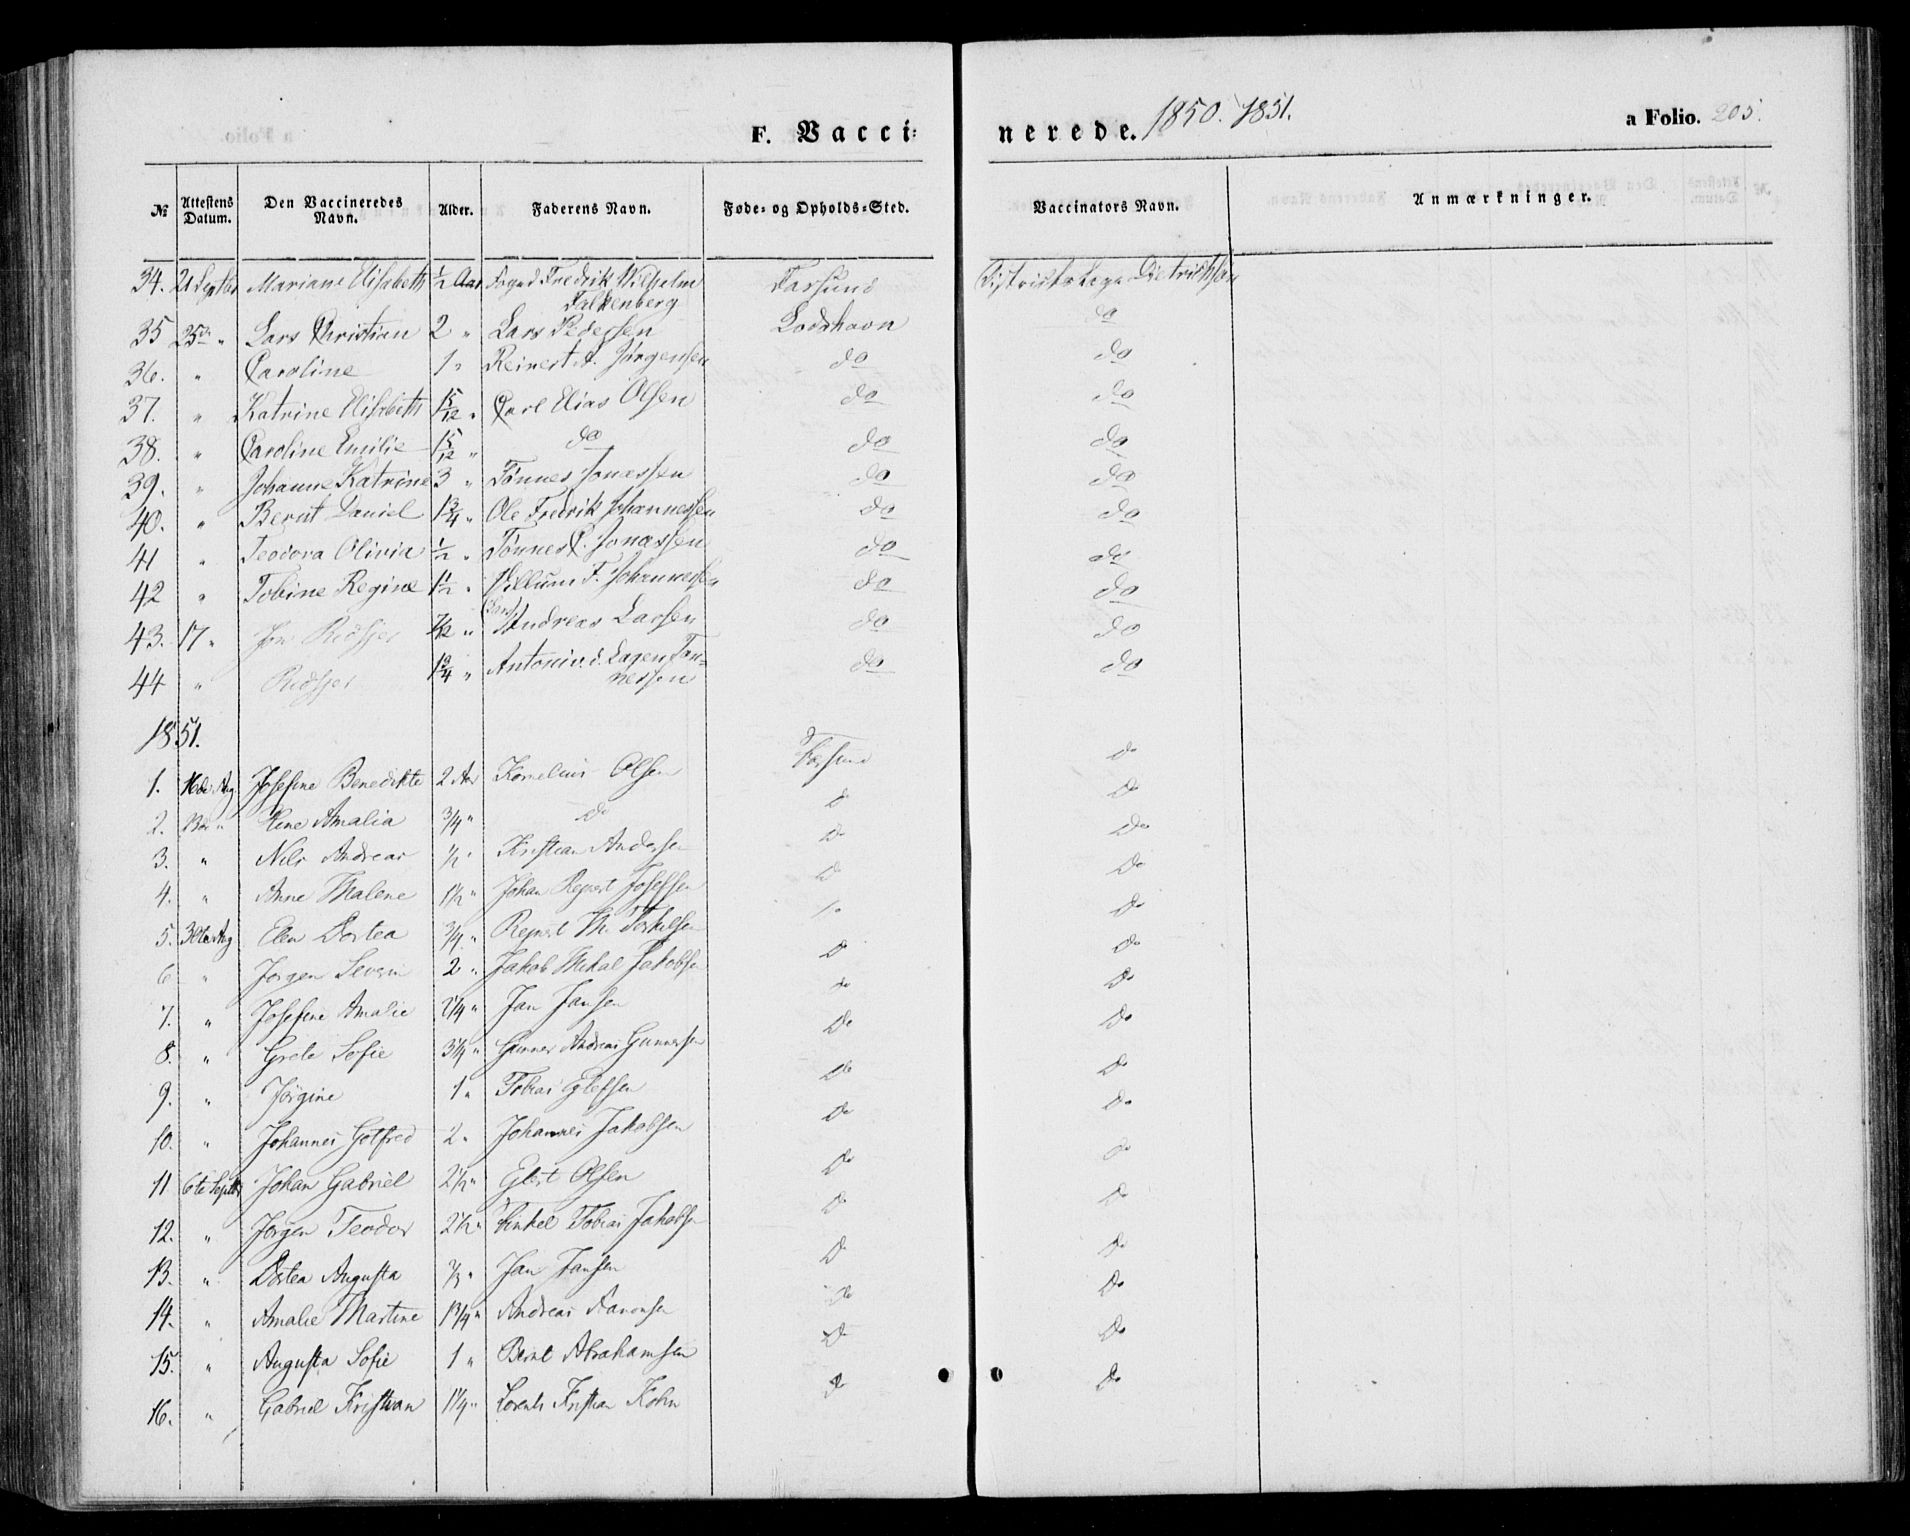 F. Vacci=
nerede. 1850. 1851.
a Folio. 205.
№ Attestens Datum. Den Vaccineredes Navn. Alder. Faderens Navn. Føde- og Opholds-Sted. Vaccinators Navn. Anmærkninger.
34. 21 Septbr Mariane Elisabeth ½ Aar Fredrik Wilhelm Farsund Dietrichson
Falkenberg
35 25de " Lars Christian 2 " Lars Pedersen Lodshavn do
36. " Caroline 1 " Reinert A. Jørgensen do do
37. " Katrine Elisabeth 1 5/12 " Carl Elias Olsen do do
38. " Caroline Emilie 1 5/12 " do do do
39. " Johanne Katrine 3 " Tønnes Jonassen do do
40. " Bernt Daniel 1 3/4 " Ole Fredrik Johannessen do do
41 " Teodora Olivia ½ " Tønnes C. Jonassen do do
42 " Tobine Regine 1½ " Villum F. Johannessen do do
43. 17 " Jon Rödsjer 7/12 " Andreas Larsen do do
44 " Rödsjer 1 3/4 " Antoni v. d. Lagen Tøn=
nessen do do
1851.
1. 16de Aug Josefine Benedikte 2 Aar Kornelius Olsen Farsund Do
2. " Amalia 3/4 " Do Do Do
3. " Nils Andreas ½ " Kristian Andersen Do Do
4. " Anne Malene 1½ " Johan Reinert Josefsen Do Do
5. 30te Aug Elen Dortea 3/4 " Reinert M. Torkelsen Do Do
6 " Jørgen Severin 2 " Jakob Mikal Jakobsen Do Do
7. " Josefine Amalie 2 1/4 " Jan Jansen Do Do
8. " Grete Sofie 3 1/4 " Gunner Andreas Gunnersen Do Do
9. " Jørgine 1 " Tobias Do Do
10. " Johannes Gotfred 2 " Johannes Jakobsen Do Do
11 6te Septbr Johan Gabriel 2½ " Eilert Olsen Do Do
12. " Jørgen Teodor 2½ " Tobias Jakobsen Do Do
13. " Dortea Augusta Jan Jansen Do Do
14. " Amalie Martine 1 3/4 " Andreas Aanonsen Do Do
15. " Augusta Sofie 1 " Bernt Abrahamsen Do Do
16. " Gabriel Kristian 1 1/4 " Lorents Kristian Køhn Do Do